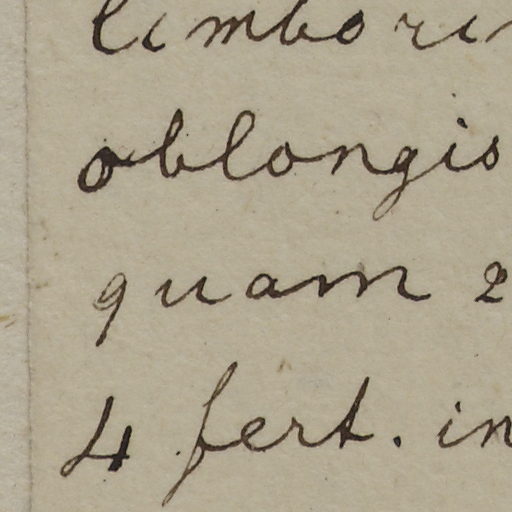 limbori
oblongis
quam 2
4 fert. in